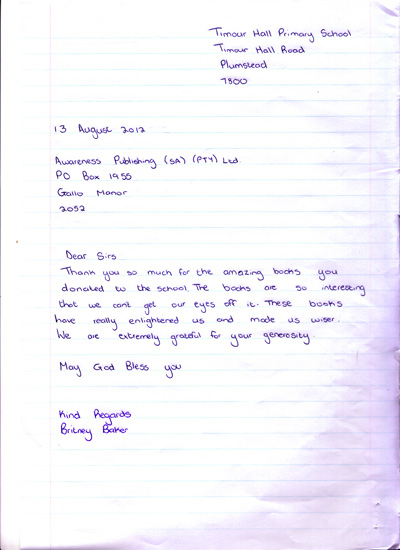 Timour Hall Primary School
Timour Hall Road
Plumstead
7800
13 August 2012
Awareness Publishing (SA) (PTY) Ltd.
PO Box 1955
Gallo Manor
2052
Dear Sirs
Thank you so much for the amazing books you
donated to the school. The books are so interesting
that we cant get our eyes off it. These books
have really enlightened us and made us wiser.
We are extremely grateful for your generosity.
May God Bless you
Kind Regards
Britney Baker